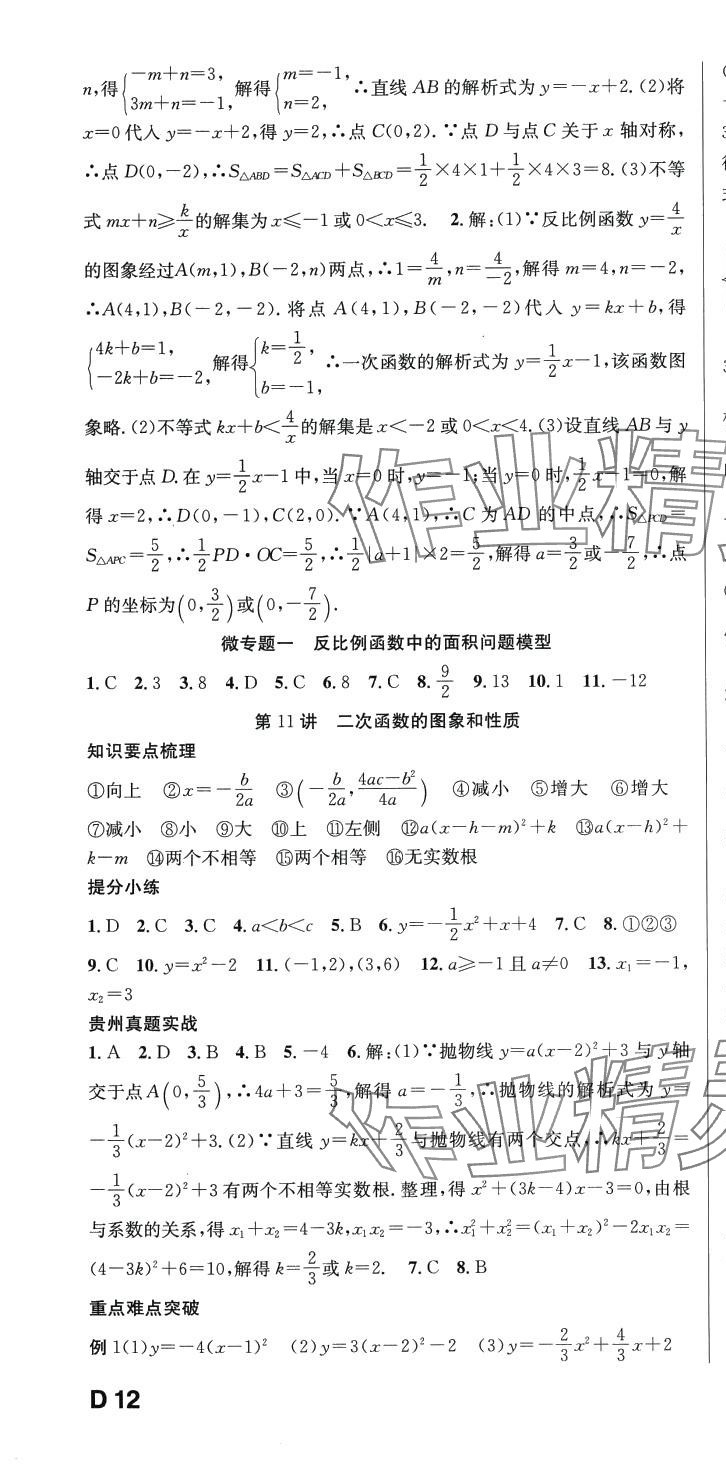 n,得{−m+n=3, 3m+n=−1, 解得{m=−1, n=2, ∴直线 AB 的解析式为 y=−x+2. (2)将
x=0代入 y=−x+2,得 y=2,∴点 C(0,2). ∵点 D 与点C 关于 x 轴对称,
∴点 D(0,−2),∴S△ABD=S△ACD+S△BCD=1/2×4×1+1/2×4×3=8. (3)不等
式 mx+n≥k/x的解集为 x≤−1 或 0<x≤3. 2.解:(1)∵反比例函数 y=4/x
的图象经过A(m,1),B(−2,n)两点,∴1=4/m,n=4/−2,解得 m=4,n=−2,
∴A(4,1),B(−2,−2). 将点 A(4,1),B(−2,−2)代入 y=kx+b,得
{4k+b=1, −2k+b=−2, 解得{k=1/2, b=−1, ∴一次函数的解析式为 y=1/2x−1,该函数图
象略. (2)不等式 kx+b<4/x的解集是 x<−2 或 0<x<4. (3)设直线 AB 与 y
轴交于点 D. 在 y=1/2x−1 中,当 x=0 时,y=−1;当 y=0 时,1/2x−1=0,解
得 x=2,∴D(0,−1),C(2,0). ∵A(4,1),∴C 为 AD 的中点,∴S△PCD=
S△APC=5/2,∴1/2PD·OC=5/2,∴1/2|a+1|×2=5/2,解得 a=3/2或−7/2,∴点
P 的坐标为(0,3/2)或(0,−7/2).
微专题一 反比例函数中的面积问题模型
1.C 2.3 3.8 4.D 5.C 6.8 7.C 8.9/2 9.13 10.1 11.−12
第 11 讲 二次函数的图象和性质
知识要点梳理
①向上 ②x=−b/2a ③(−b/2a,4ac−b²/4a) ④减小 ⑤增大 ⑥增大
⑦减小 ⑧小 ⑨大 ⑩上 ⑪左侧 ⑫a(x−h−m)²+k ⑬a(x−h)²+
k−m ⑭两个不相等 ⑮两个相等 ⑯无实数根
提分小练
1.D 2.C 3.C 4.a<b<c 5.B 6.y=−1/2x²+x+4 7.C 8.①②③
9.C 10.y=x²−2 11.(−1,2),(3,6) 12.a≥−1 且 a≠0 13.x₁=−1,
x₂=3
贵州真题实战
1.A 2.D 3.B 4.B 5.−4 6.解:(1)∵抛物线 y=a(x−2)²+3 与 y 轴
交于点 A(0,5/3),∴4a+3=5/3,解得 a=−1/3,∴抛物线的解析式为 y=
−1/3(x−2)²+3. (2)∵直线 y=kx+2/3与抛物线有两个交点,∴kx+2/3=
−1/3(x−2)²+3 有两个不相等实数根. 整理,得 x²+(3k−4)x−3=0,由根
与系数的关系,得 x₁+x₂=4−3k,x₁x₂=−3,∴x₁²+x₂²=(x₁+x₂)²−2x₁x₂=
(4−3k)²+6=10,解得 k=2/3或 k=2. 7.C 8.B
重点难点突破
例 1(1)y=−4(x−1)² (2)y=3(x−2)²−2 (3)y=−2/3x²+4/3x+2
D 12
作业精灵
作业精灵